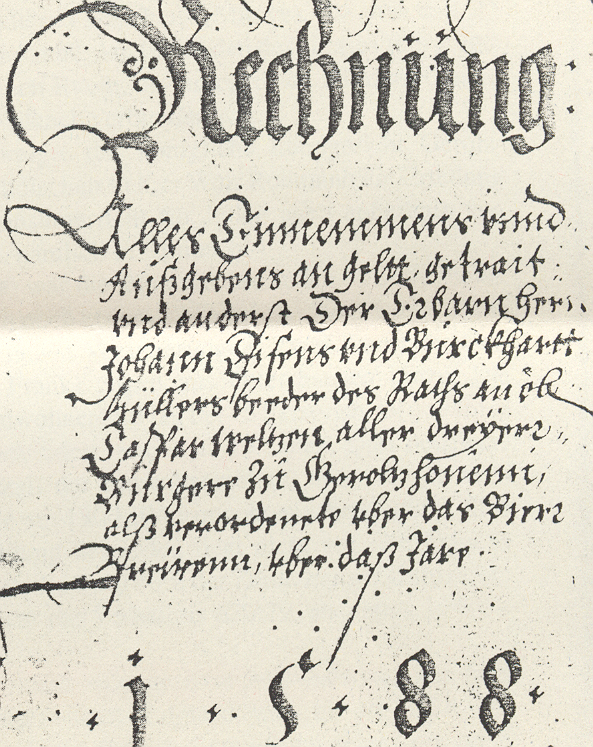 Rechnüng
Alles Einnemmens vnnd
Außgebens an geltt, getrait
vnd anderst Der Erbarn hern
Johann Eisens vnd Burckhartt
Hüllers beeder des Raths
Caspar Weltzen, aller dreyer
Bürgere Zů Gerolzhouenn,
alß verordenete vber das Bier
Breüenn, vber daß Jare
1 5 8 8